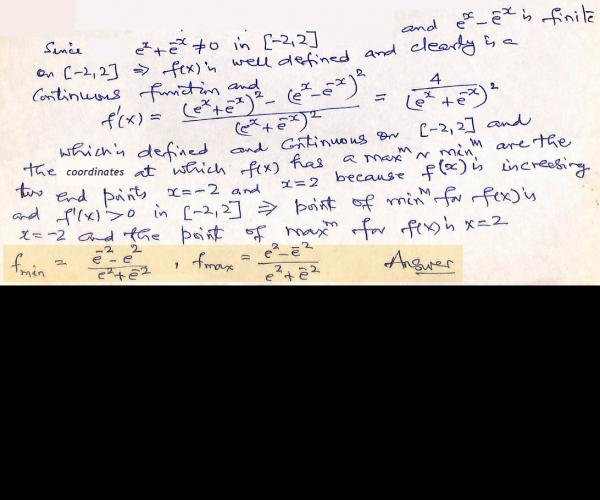 Since e^x + e^-x ≠ 0 in [-2,2] and e^x - e^-x is finite
on [-2,2] ⇒ f(x) is well defined and clearly is a
Continuous function and
f'(x) = ((e^x + e^-x)^2 - (e^x - e^-x)^2) / (e^x + e^-x)^2 = 4 / (e^x + e^-x)^2
which is defined and Continuous on [-2,2] and
the coordinates at which f(x) has a max^m ~ min^m are the
two end points x=-2 and x=2 because f(x) is increasing
and f'(x) > 0 in [-2,2] ⇒ point of min^m for f(x) is
x=-2 and the point of max^m for f(x) is x=2
f_min = (e^-2 - e^2) / (e^2 + e^-2) , f_max = (e^2 - e^-2) / (e^2 + e^-2) Answer